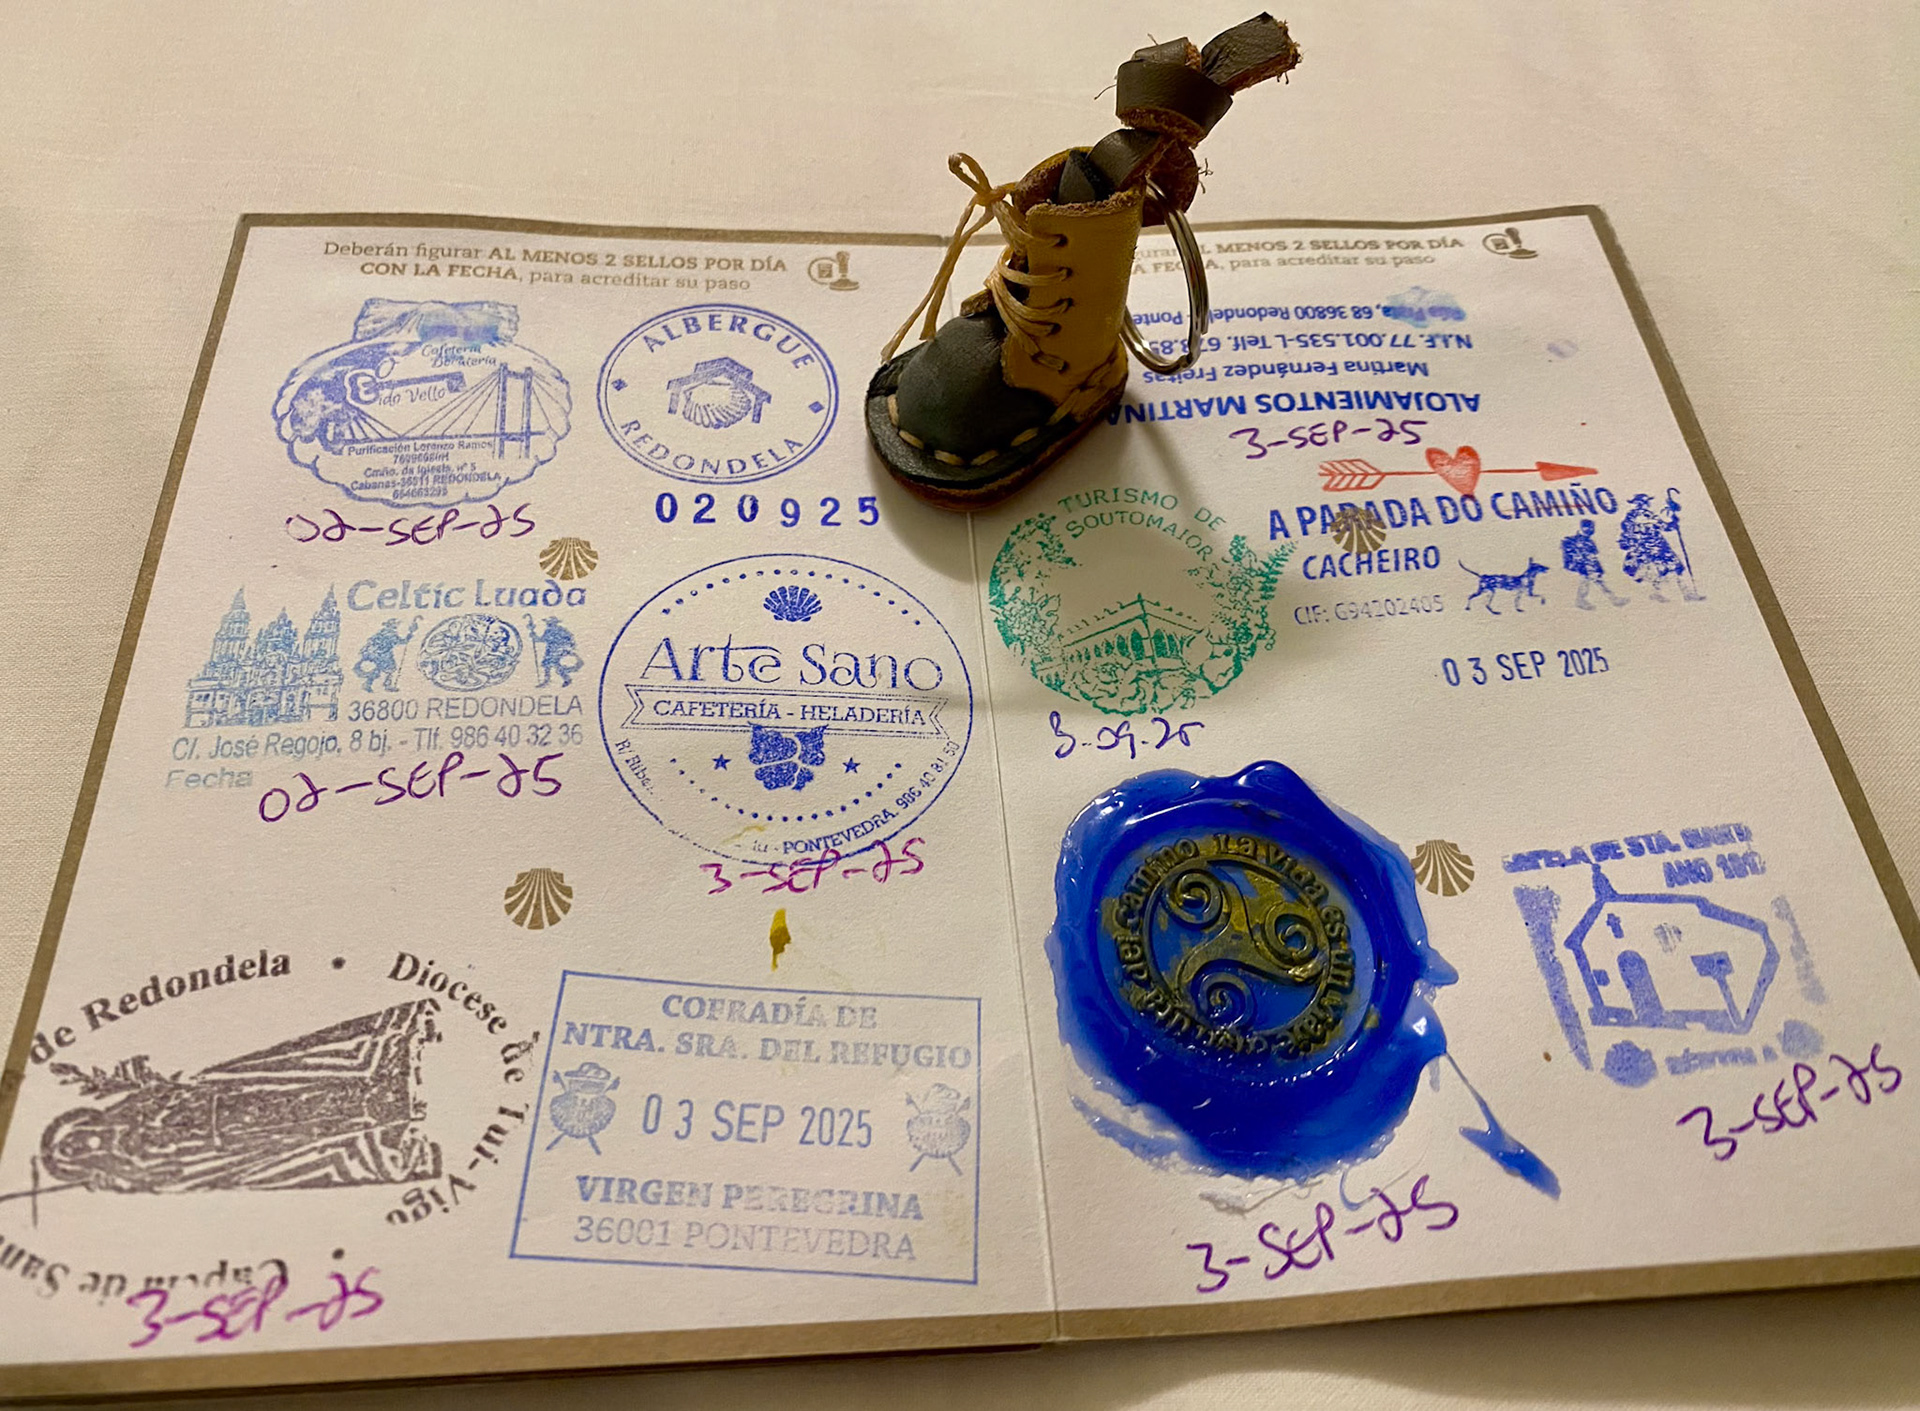 Deberán figurar AL MENOS 2 SELLOS POR DÍA
CON LA FECHA, para acreditar su paso
Cafetería
Eido Vello
Purificación Lorenzo Ramos
Cmño. da Igrexa, nº 5
Cabanas-36811 REDONDELA
02-SEP-25
ALBERGUE
REDONDELA
020925
Celtic Luada
36800 REDONDELA
C/. José Regojo, 8 bj. - Tlf. 986 40 32 36
Fecha
02-SEP-25
Arte Sano
CAFETERÍA - HELADERÍA
PONTEVEDRA. 986 40 81 50
3-SEP-25
de Redondela • Diócese de Tui-Vigo
Capela de San
3-SEP-25
COFRADÍA DE
NTRA. SRA. DEL REFUGIO
03 SEP 2025
VIRGEN PEREGRINA
36001 PONTEVEDRA
AL MENOS 2 SELLOS POR DÍA
para acreditar su paso
ALOJAMIENTOS MARTINA
Martina Fernández Freitas
N.I.F. 77.001.535-L Telf.
68 36800 Redondela
3-SEP-25
TURISMO DE
SOUTOMAIOR
3-09-25
A PARADA DO CAMIÑO
CACHEIRO
CIF: G94202405
03 SEP 2025
La Vida es un
del Camino
3-SEP-25
DE STA. MARTA
ANO 1617
3-SEP-25